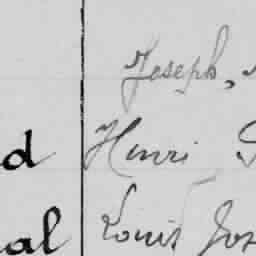 Joseph,
d Henri
al Louis Jos